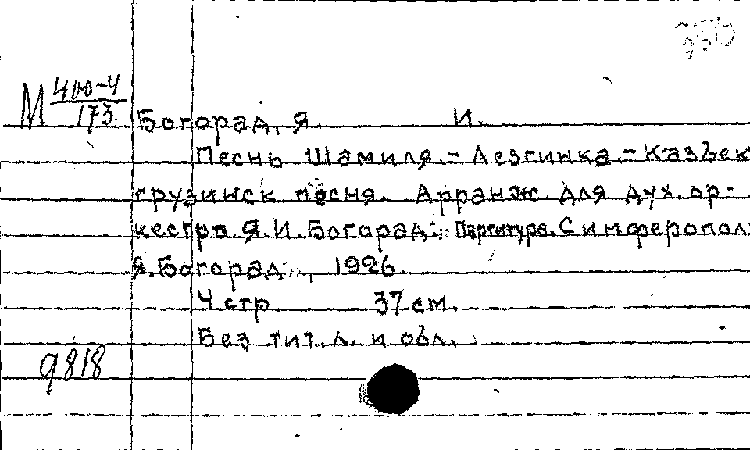 М 400-4
173
Богорад, Я. И.
Песнь Шамиля. - Лезгинка. - Казбек
грузинск песня. Арранж для дух. ор-
кестра Я.И. Богорад. Партитура. Симферопол
Я. Богорад, 1926.
4 стр 37 см.
Без тит. л. и обл.
9818